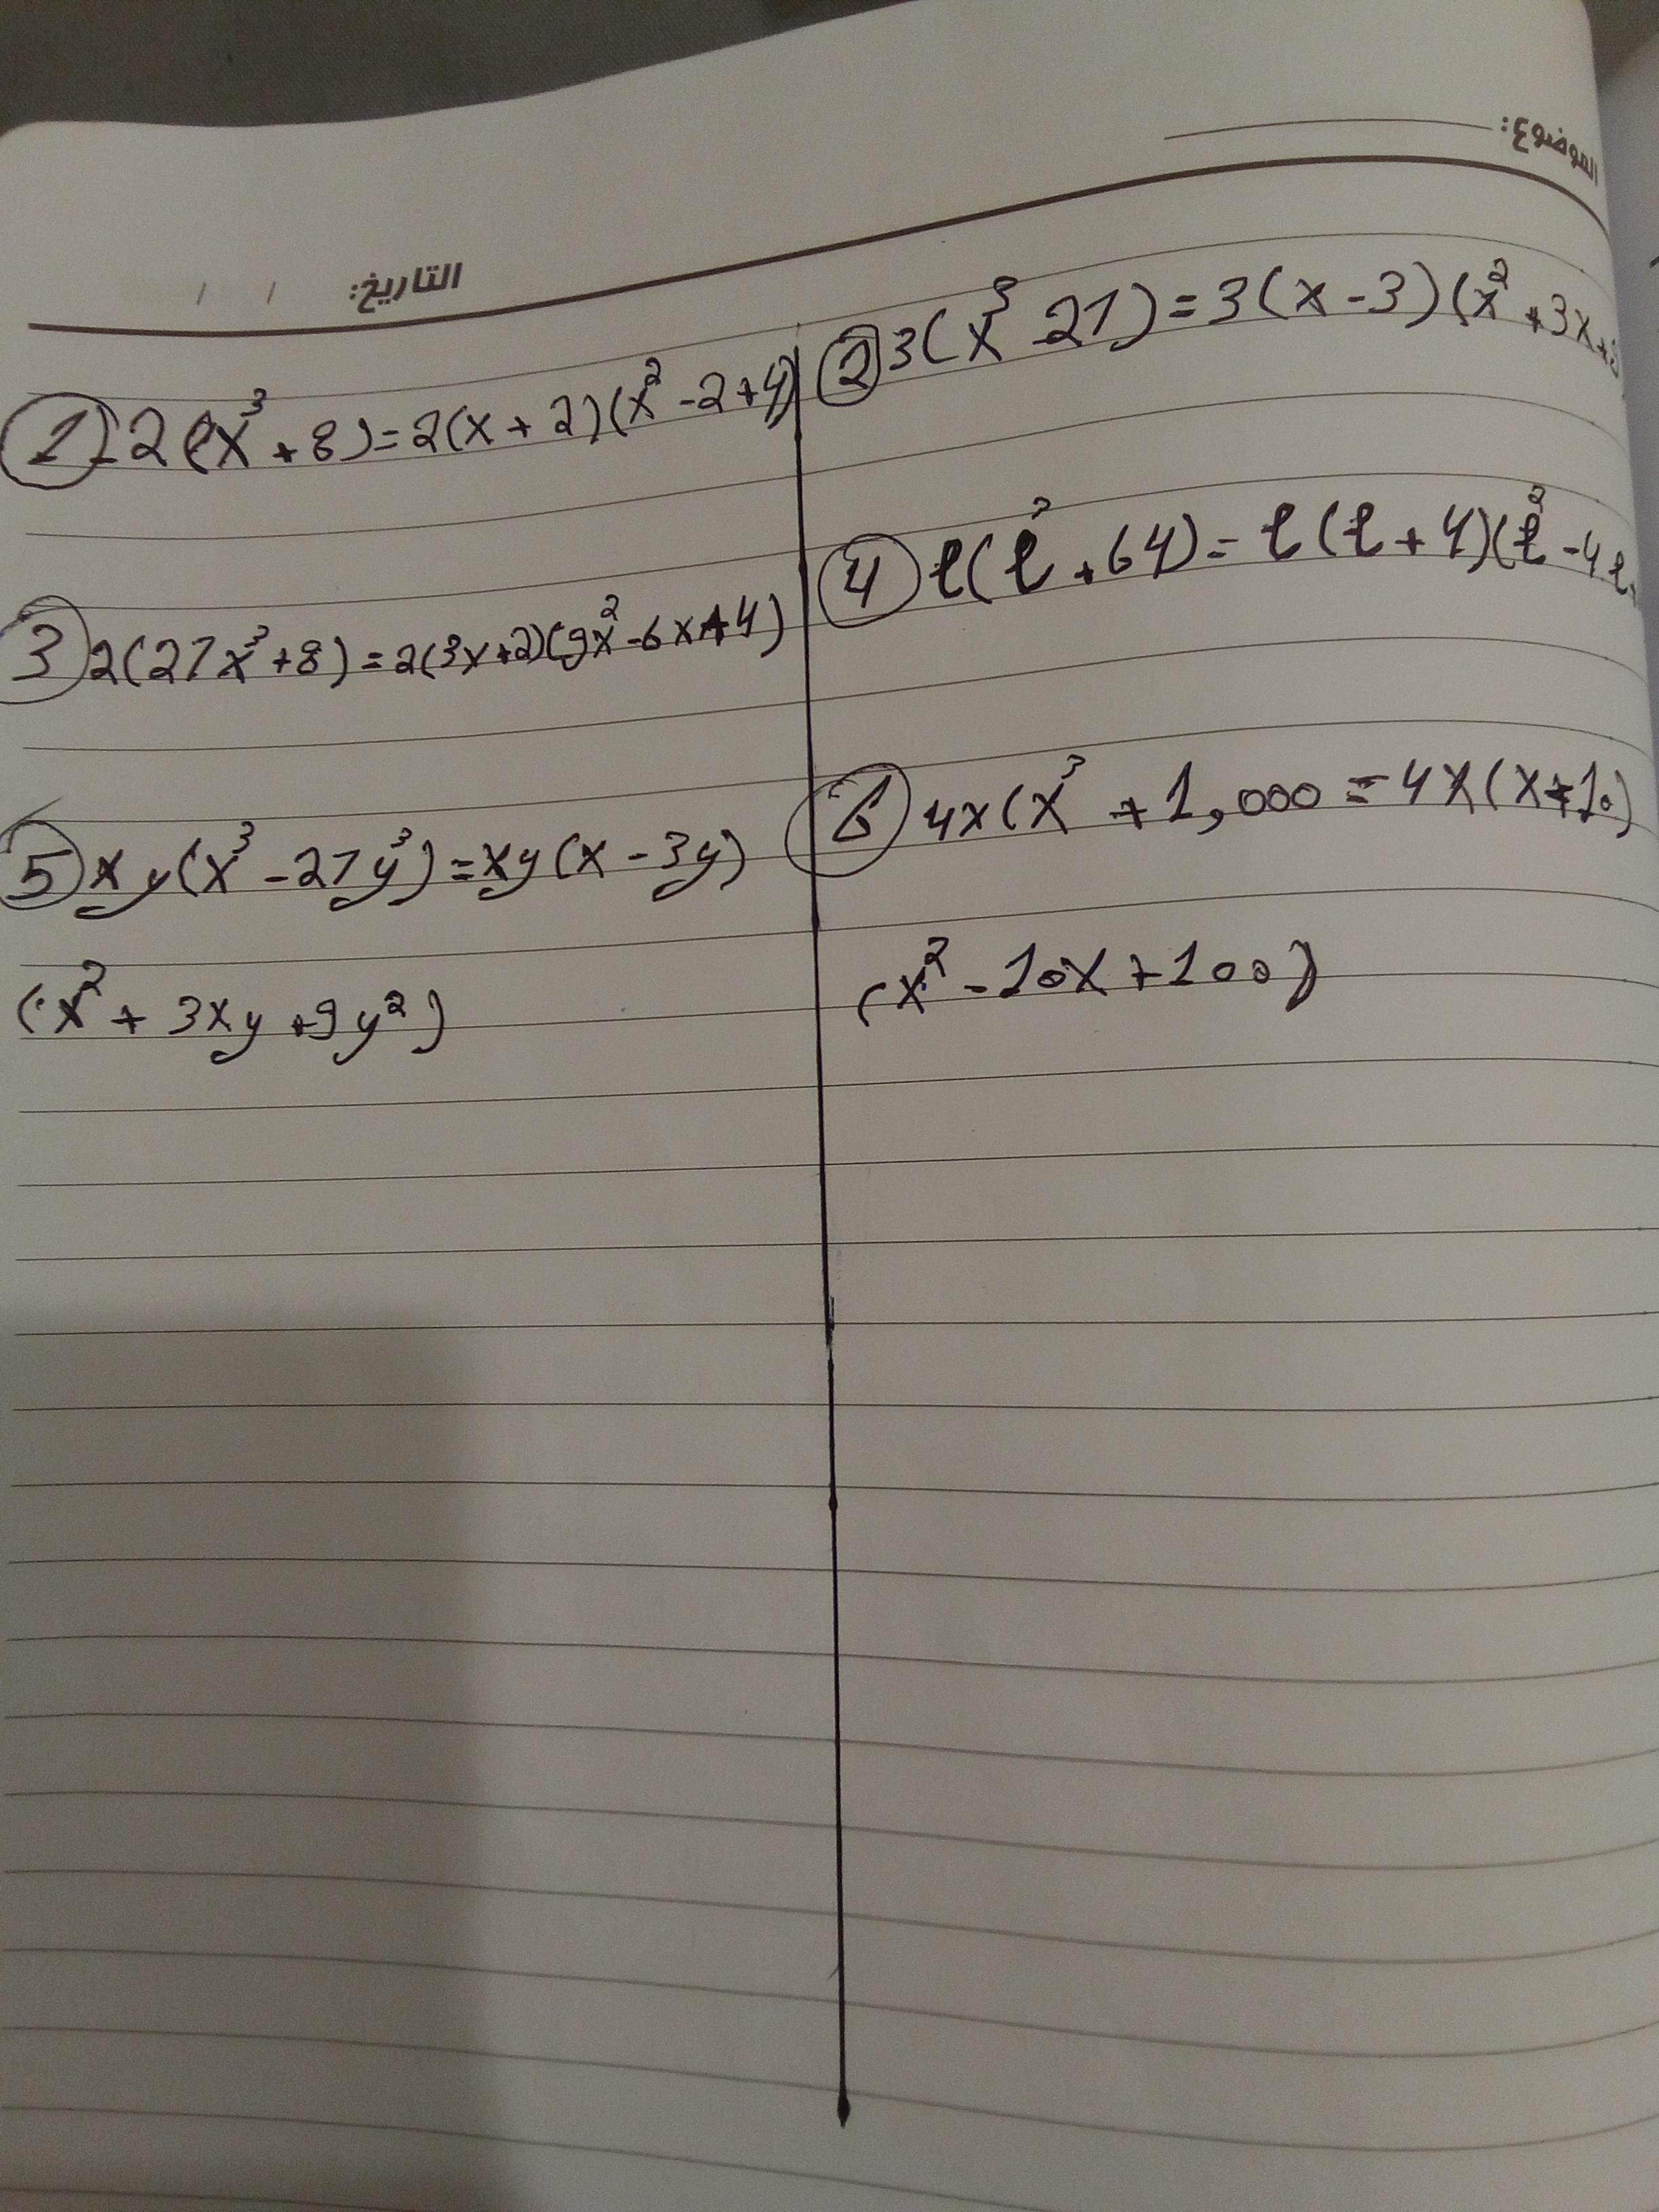 الموضوع:
التاريخ: / /
① 2(x³+8)=2(x+2)(x²-2+4)
② 3(x³-27)=3(x-3)(x²+3x+
③ 2(27x³+8)=2(3x+2)(9x²-6x+4)
④ l(l³+64)=l(l+4)(l²-4l+
⑤ xy(x³-27y³)=xy(x-3y)
(x²+3xy+9y²)
⑥ 4x(x³+1,000=4x(x+10)
(x²-10x+100)